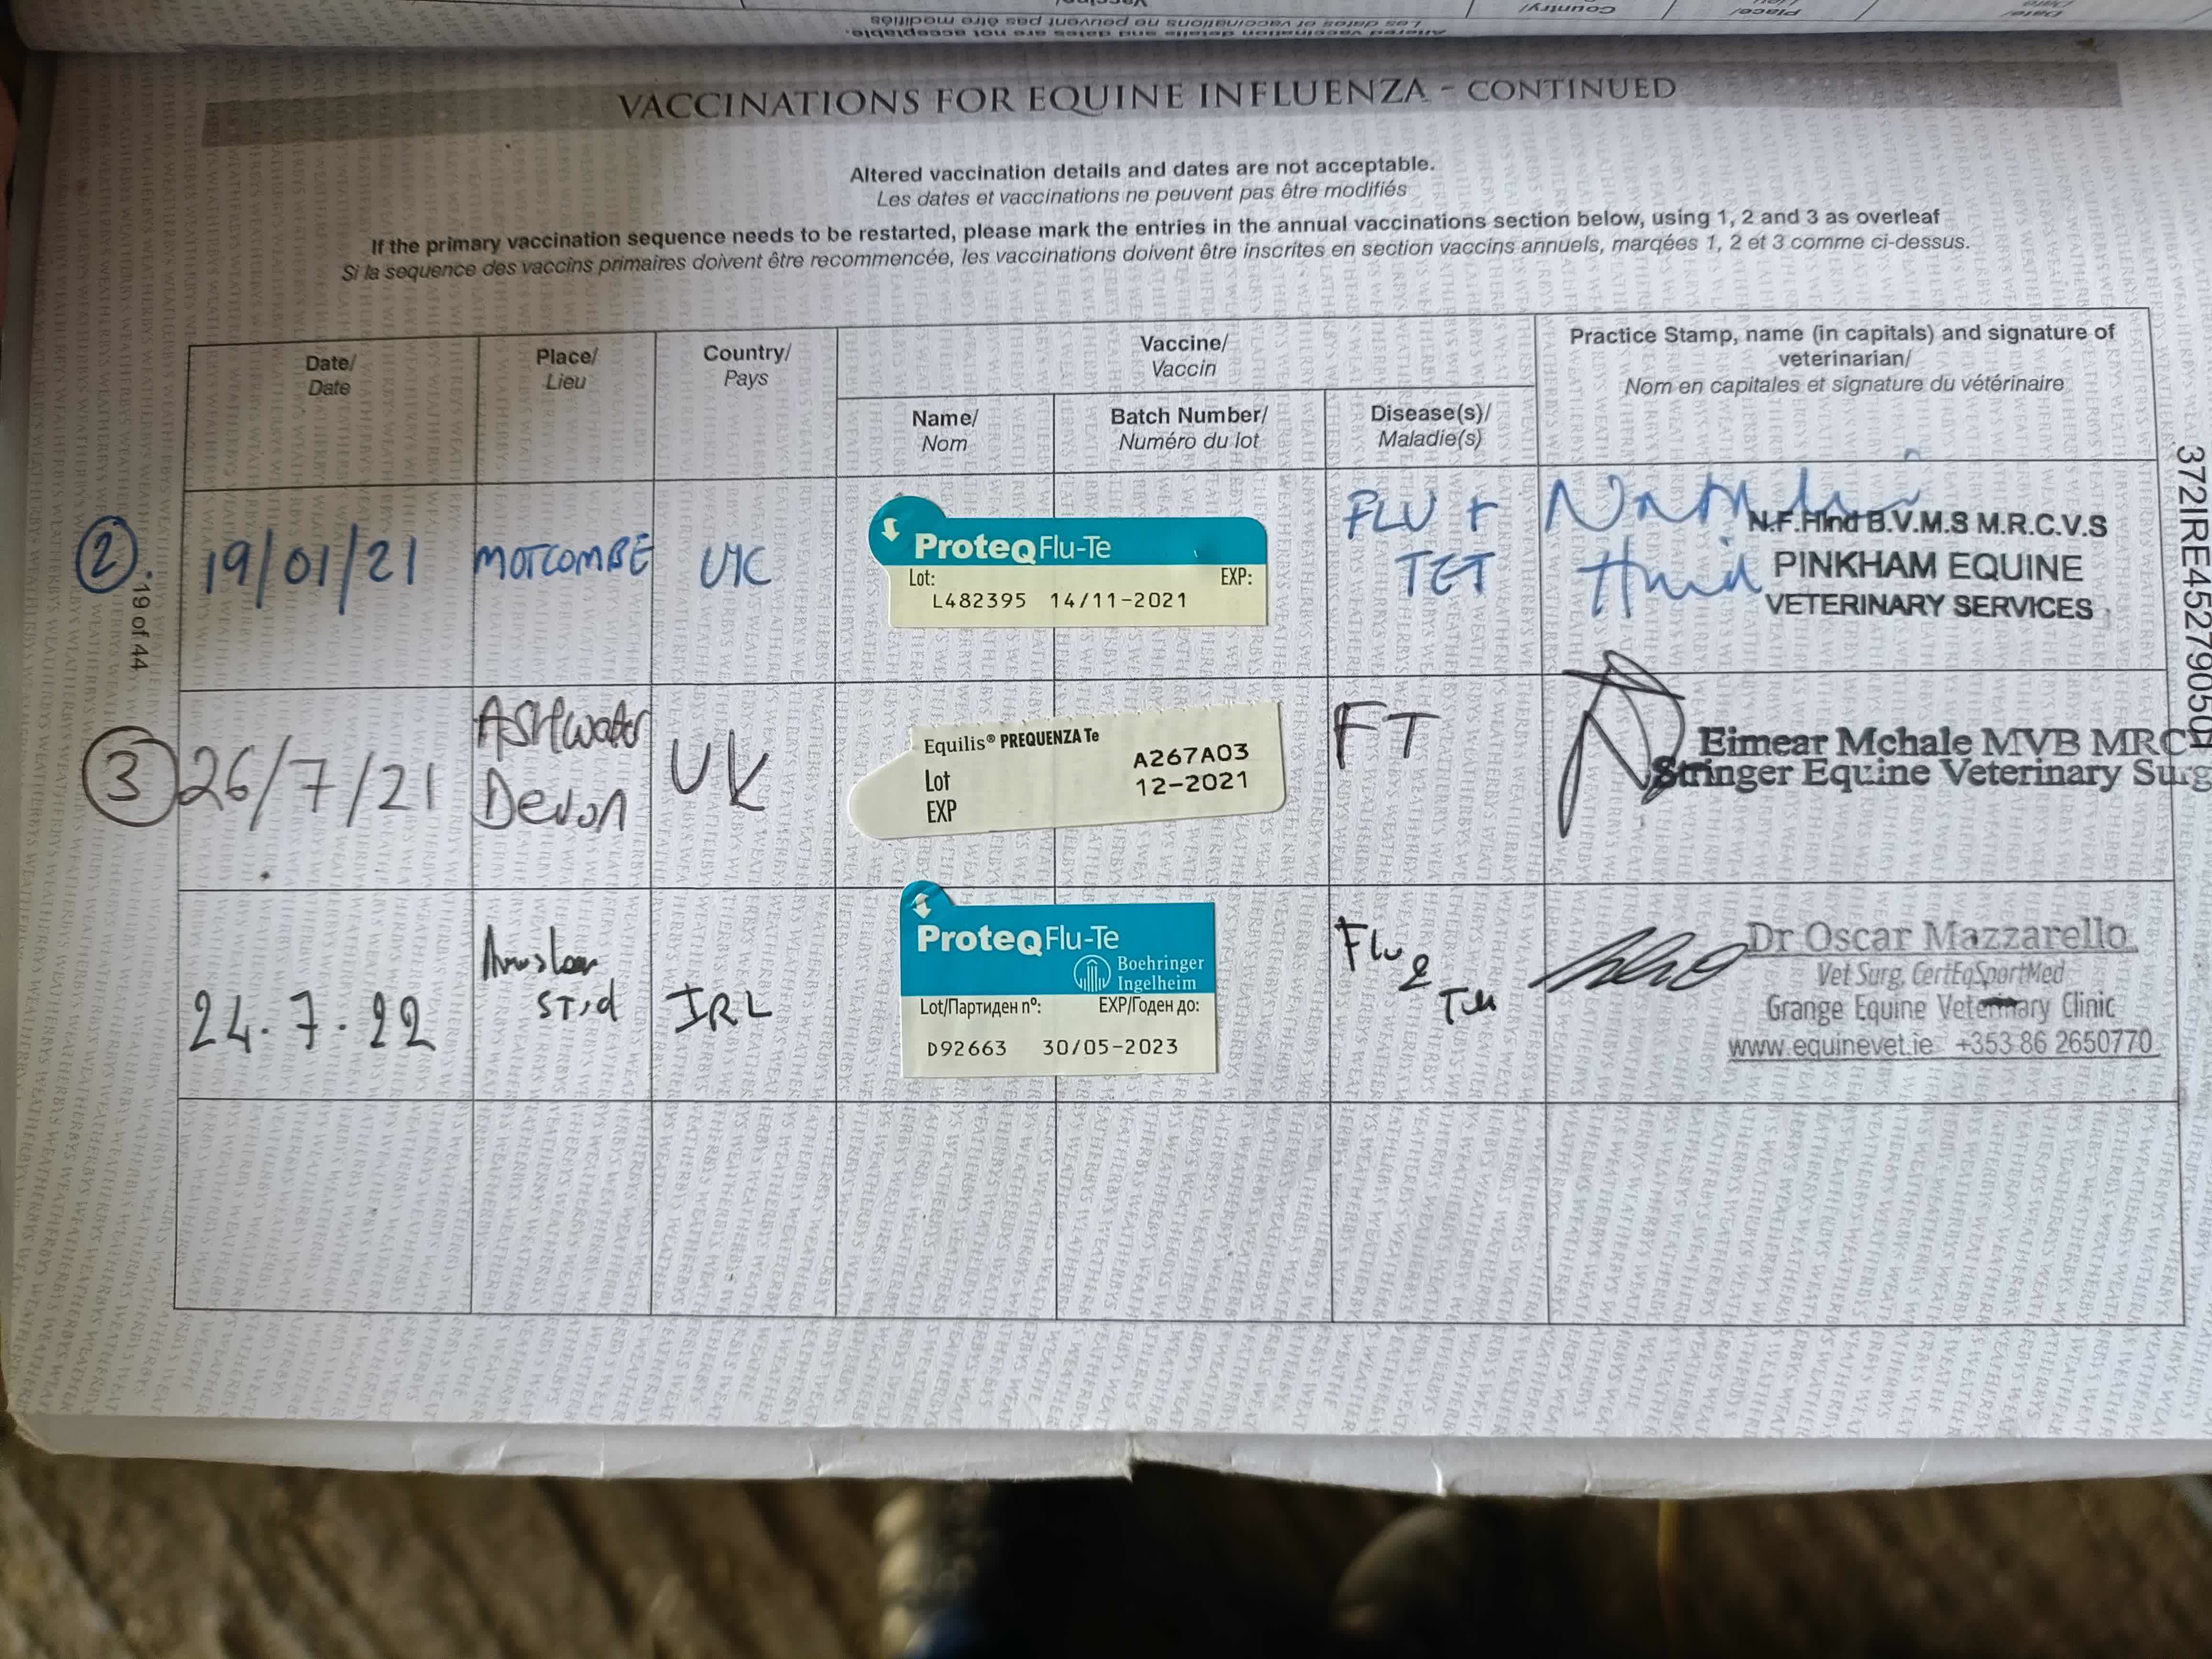 Altered vaccination details and dates are not acceptable.
Les dates et vaccinations ne peuvent pas être modifiés
Country/
Place/
Date/
VACCINATIONS FOR EQUINE INFLUENZA - CONTINUED
Altered vaccination details and dates are not acceptable.
Les dates et vaccinations ne peuvent pas être modifiés
If the primary vaccination sequence needs to be restarted, please mark the entries in the annual vaccinations section below, using 1, 2 and 3 as overleaf
Si la sequence des vaccins primaires doivent être recommencée, les vaccinations doivent être inscrites en section vaccins annuels, marqées 1, 2 et 3 comme ci-dessus.
Date/
Date
Place/
Lieu
Country/
Pays
Vaccine/
Vaccin
Name/
Nom
Batch Number/
Numéro du lot
Disease(s)/
Maladie(s)
Practice Stamp, name (in capitals) and signature of
veterinarian/
Nom en capitales et signature du vétérinaire
2
19/01/21
MOTCOMBE
UK
ProteqFlu-Te
Lot: EXP:
L482395 14/11-2021
FLU +
TET
N.F.Hind B.V.M.S M.R.C.V.S
PINKHAM EQUINE
VETERINARY SERVICES
3
26/7/21
Ashwater
Devon
UK
Equilis® PREQUENZA Te
Lot A267A03
EXP 12-2021
FT
Eimear Mchale MVB MRC
Stringer Equine Veterinary Surg
24.7.22
Stud
IRL
ProteqFlu-Te
Boehringer
Ingelheim
Lot/Партиден nº: EXP/Годен до:
D92663 30/05-2023
Flu &
Dr Oscar Mazzarello
Vet Surg, CertEqSportMed
Grange Equine Veterinary Clinic
www.equinevet.ie +353 86 2650770
19 of 44